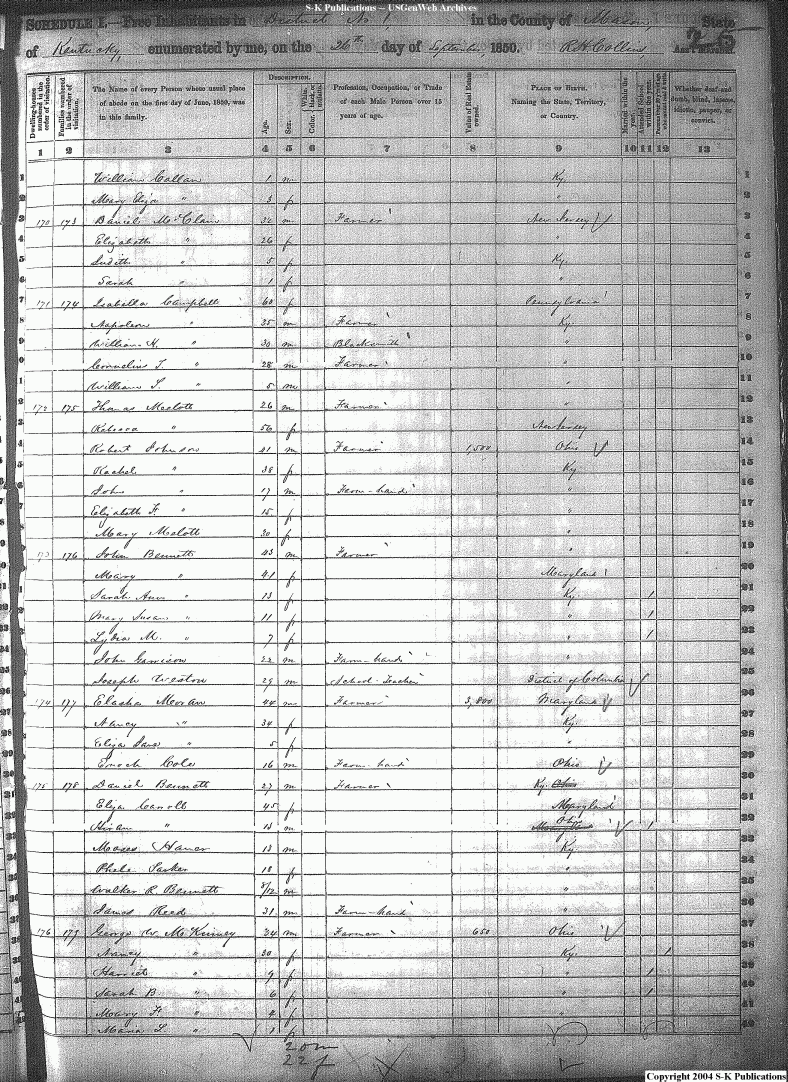 S-K Publications -- USGenWeb Archives
SCHEDULE I.—Free Inhabitants in District No 1 in the County of Mason, State
of Kentucky, enumerated by me, on the 26th day of September, 1850. R. H. Collins, Ass't Marshal.
25
Dwelling-houses numbered in the order of visitation. Families numbered in the order of visitation. The Name of every Person whose usual place of abode on the first day of June, 1850, was in this family. DESCRIPTION. Age. Sex. Color, White, black, or mulatto. Profession, Occupation, or Trade of each Male Person over 15 years of age. Value of Real Estate owned. PLACE OF BIRTH. Naming the State, Territory, or Country. Married within the year. Attended School within the year. Whether deaf and dumb, blind, insane, idiotic, pauper, or convict.
1 2 3 4 5 6 7 8 9 10 11 12 13
1 William 1 m Ky. 1
2 Mary Eliza " 3 f " 2
3 170 173 Daniel McClain 32 m Farmer New Jersey 3
4 Elizabeth " 26 f " 4
5 Judith " 5 f Ky. 5
6 Sarah " 1 f " 6
7 171 174 Isabella Campbell 60 f Pennsylvania 7
8 Napoleon " 35 m Farmer Ky. 8
9 William H. " 30 m Blacksmith " 9
10 Cornelius T. " 28 m Farmer " 10
11 William S. " 5 m " 11
12 172 175 Thomas Melott 26 m Farmer " 12
13 Rebecca " 56 f New Jersey 13
14 Robert Johnson 41 m Farmer 1,500 Ohio 14
15 Rachel " 38 f Ky. 15
16 John " 17 m Farm-hand " 16
17 Elizabeth F. " 15 f " 17
18 Mary Melott 30 f " 18
19 173 176 John Bennett 43 m Farmer " 19
20 Mary " 41 f Maryland 20
21 Sarah Ann " 13 f Ky. 1 21
22 Mary Susan " 11 f " 1 22
23 Lydia M. " 7 f " 1 23
24 John Garrison 22 m Farm-hand " 24
25 Joseph Weston 29 m School-Teacher District of Columbia 25
26 174 177 Elasha Moran 44 m Farmer 3,800 Maryland 26
27 Nancy " 34 f Ky. 27
28 Eliza Jane " 5 f " 28
29 Enoch Cole 16 m Farm-hand Ohio 29
30 175 178 Daniel Bennett 27 m Farmer Ky. Ohio 30
31 Eliza Carroll 45 f Maryland 31
32 Hiram " 13 m Ohio Maryland 1 32
33 Moses 13 m Ky. 33
34 18 f " 34
35 Walker R. Bennett 8/12 m " 35
36 James Reed 31 m Farm-hand " 36
37 176 179 George W. McKinney 34 m Farmer 650 Ohio 37
38 Nancy " 30 f Ky. 1 38
39 Harriet " 9 f " 1 39
40 Sarah B " 6 f " 1 40
Mary F. " 4 f "
Maria L. " 1 f "
20m
22f
Copyright 2004 S-K Publications